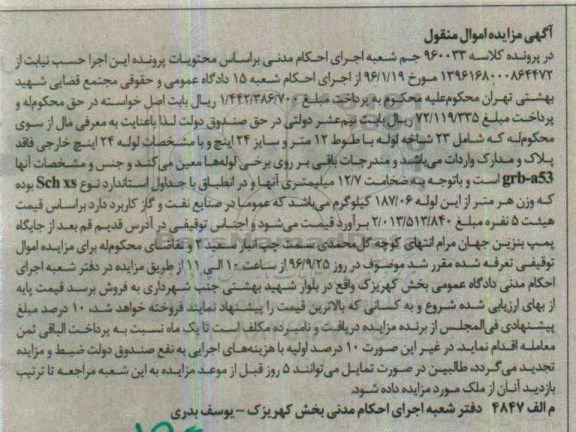 آگهی مزایده اموال منقول
در پرونده کلاسه ۹۶۰۰۳۳ جم شعبه اجرای احکام مدنی براساس محتویات پرونده این اجرا حسب نیابت از
۱۳۹۶۱۶۸۰۰۰۸۶۴۴۷۲ مورخ ۹۶/۱/۱۹ از اجرای احکام شعبه ۱۵ دادگاه عمومی و حقوقی مجتمع قضایی شهید
بهشتی تهران محکوم‌علیه محکوم به پرداخت مبلغ ۱/۴۴۲/۳۸۶/۷۰۰ ریال بابت اصل خواسته در حق محکوم‌له و
پرداخت مبلغ ۷۲/۱۱۹/۳۳۵ ریال بابت نیم‌عشر دولتی در حق صندوق دولت لذا باعنایت به معرفی مال از سوی
محکوم‌له که شامل ۲۳ شاخه لوله با طول ۱۲ متر و سایز ۲۴ اینچ و با مشخصات لوله ۲۴ اینچ خارجی فاقد
پلاک و مدارک واردات می‌باشد و مندرجات باقی بر روی برخی لوله‌ها معین می‌کند و جنس و مشخصات آنها
grb-a53 است و باتوجه به ضخامت ۱۲/۷ میلیمتری آنها و در انطباق با جداول استاندارد نوع Sch xs بوده
که وزن هر متر از این لوله ۱۸۷/۰۶ کیلوگرم می‌باشد که عموما در صنایع نفت و گاز کاربرد دارد براساس قیمت
هیئت ۵ نفره مبلغ ۲/۰۱۳/۵۱۳/۸۴۰ برآورد قیمت می‌شود و اجناس توقیفی در آدرس قدیم قم بعد از جایگاه
پمپ بنزین جهان مرام انتهای کوچه گل‌محمدی سمت چپ انبار سعید ۲ و تقاضای محکوم‌له برای مزایده اموال
توقیفی تعرفه شده مقرر شد موصوف در روز ۹۶/۹/۲۵ از ساعت ۱۰ الی ۱۱ از طریق مزایده در دفتر شعبه اجرای
احکام مدنی دادگاه عمومی بخش کهریزک واقع در بلوار شهید بهشتی جنب شهرداری به فروش برسد قیمت پایه
از بهای ارزیابی شده شروع و به کسانی که بالاترین قیمت را پیشنهاد نمایند فروخته خواهد شد، ۱۰ درصد مبلغ
پیشنهادی فی‌المجلس از برنده مزایده دریافت و نامبرده مکلف است تا یک ماه نسبت به پرداخت الباقی ثمن
معامله اقدام نماید. در غیر این صورت ۱۰ درصد اولیه با هزینه‌های اجرایی به نفع صندوق دولت ضبط و مزایده
تجدید می‌گردد، طالبین در صورت تمایل می‌توانند ۵ روز قبل از موعد مزایده به این شعبه مراجعه تا ترتیب
بازدید آنان از ملک مورد مزایده داده شود.
م الف ۴۸۴۷ دفتر شعبه اجرای احکام مدنی بخش کهریزک – یوسف بدری